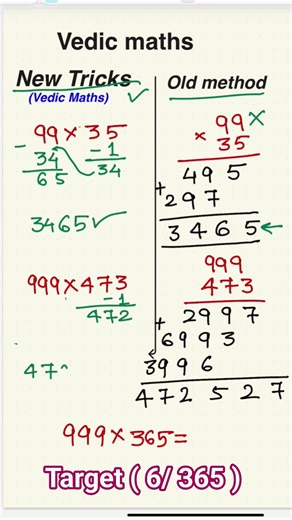 Vedic maths
New Tricks
(Vedic Maths)
99 × 35
- 34 -1
65 34
3465
999 × 473
-1
472
47
Old method
99 ×
× 35
495
+ 297
3465 ←
999
473
2997
+ 6993
3996
472527
999 × 365 =
Target ( 6/ 365 )